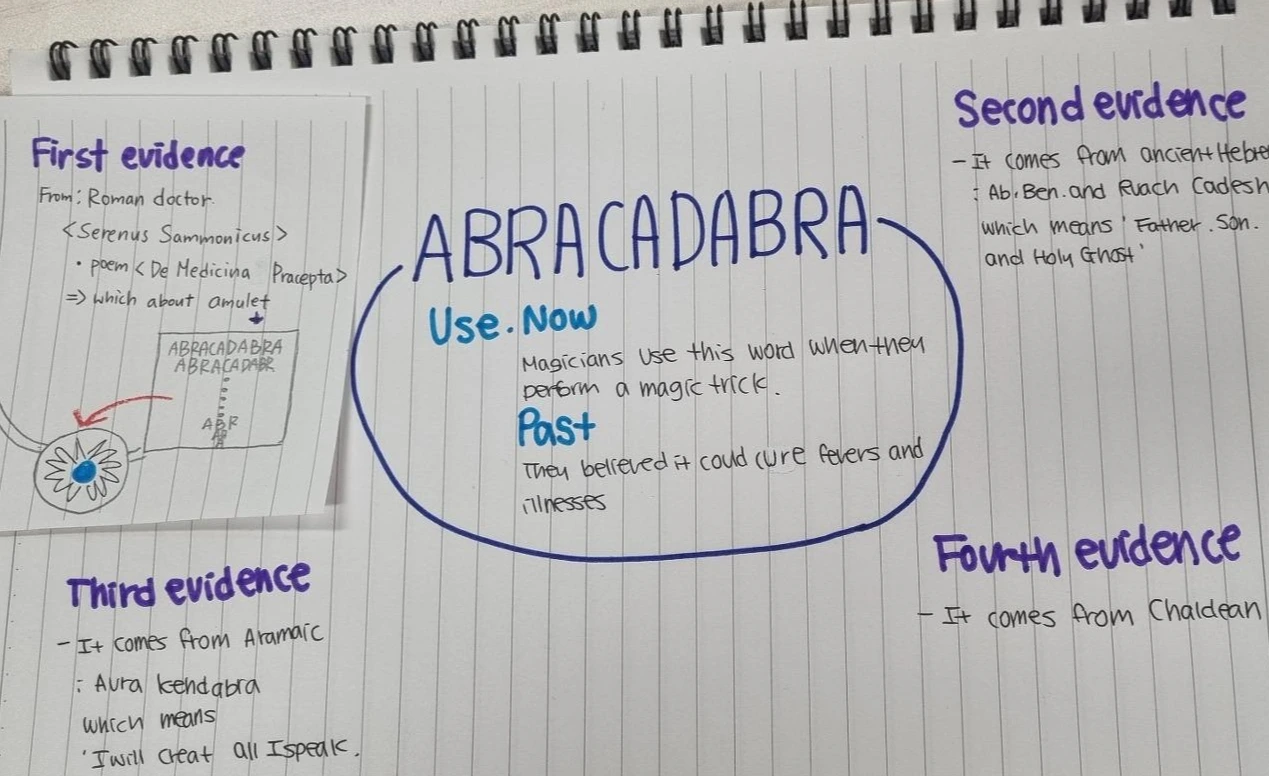 ABRACADABRA
Use. Now
Magicians use this word when they
perform a magic trick.
Past
They believed it could cure fevers and
illnesses
First evidence
From: Roman doctor.
<Serenus Sammonicus>
• poem <De Medicina Pracepta>
=> which about amulet
ABRACADABRA
ABRACADABR
ABR
AB
A
Second evidence
- It comes from ancient Hebre
: Ab. Ben. and Ruach Cadesh
which means 'Father. Son.
and Holy Ghost'
Third evidence
- It comes from Aramaic
: Avra kendabra
which means
'I will creat all I speak.
Fourth evidence
- It comes from Chaldean